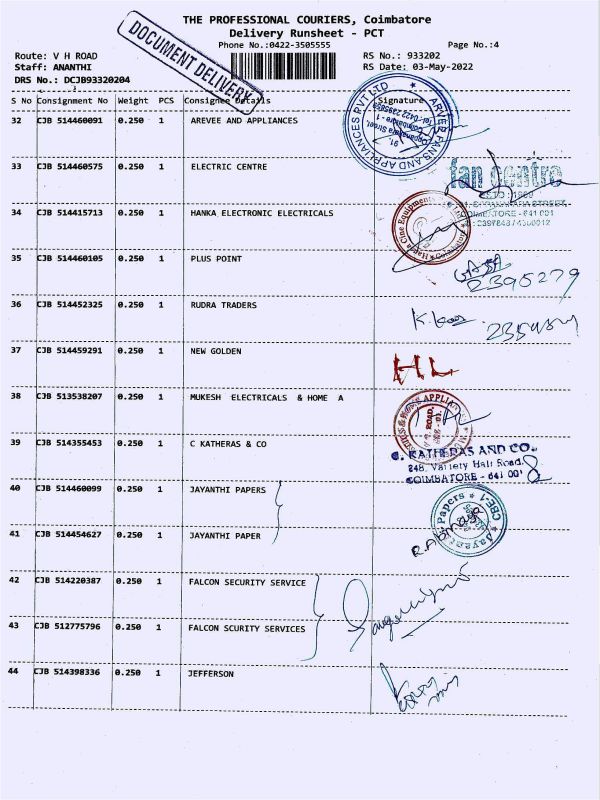 THE PROFESSIONAL COURIERS, Coimbatore
Delivery Runsheet - PCT
Phone No.:0422-3505555
Page No.:4
DOCUMENT DELIVERY
Route: V H ROAD
RS No.: 933202
Staff: ANANTHI
RS Date: 03-May-2022
DRS No.: DCJB93320204
S No Consignment No Weight PCS Consignee Details Signature
32 CJB 514460091 0.250 1 AREVEE AND APPLIANCES
ARVEE FANS AND APPLIANCES PVT LTD
33 CJB 514460575 0.250 1 ELECTRIC CENTRE
fan centre
COIMBATORE - 641 001
34 CJB 514415713 0.250 1 HANKA ELECTRONIC ELECTRICALS
35 CJB 514460105 0.250 1 PLUS POINT
2395279
36 CJB 514452325 0.250 1 RUDRA TRADERS
37 CJB 514459291 0.250 1 NEW GOLDEN
38 CJB 513538207 0.250 1 MUKESH ELECTRICALS & HOME A
39 CJB 514355453 0.250 1 C KATHERAS & CO
C. KATHERAS AND CO.,
248, Variety Hall Road,
COIMBATORE - 641 001
40 CJB 514460099 0.250 1 JAYANTHI PAPERS
41 CJB 514454627 0.250 1 JAYANTHI PAPER
42 CJB 514220387 0.250 1 FALCON SECURITY SERVICE
43 CJB 512775796 0.250 1 FALCON SCURITY SERVICES
44 CJB 514398336 0.250 1 JEFFERSON